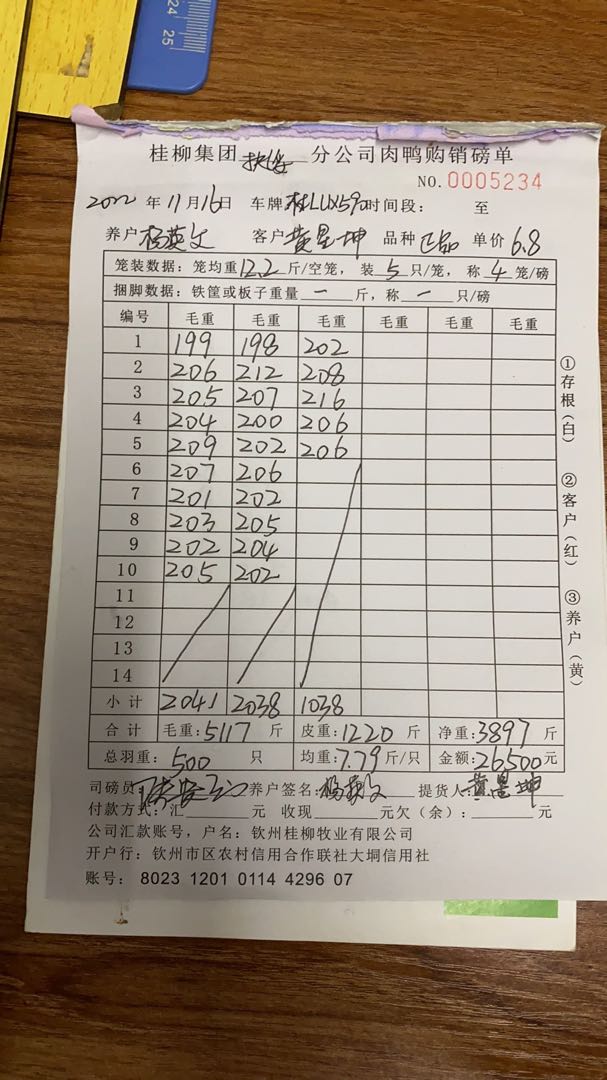 24
25
桂柳集团 分公司肉鸭购销磅单
NO.0005234
2022 年 11月16日 车牌 桂LUX590 时间段： 至
养户 杨英文 客户 黄昱坤 品种 正品 单价 6.8
笼装数据：笼均重12.2斤/空笼，装5只/笼，称4笼/磅
捆脚数据：铁筐或板子重量一斤，称一只/磅
编号 毛重 毛重 毛重 毛重 毛重 毛重
1 199 198 202
2 206 212 208
3 205 207 216
4 204 200 206
5 209 202 206
6 207 206
7 201 202
8 203 205
9 202 204
10 205 202
11
12
13
14
小计 2041 2038 1038
合计 毛重:5117 斤 皮重:1220 斤 净重:3897 斤
总羽重： 500 只 均重:7.79斤/只 金额:26500元
司磅员 养户签名: 杨英文 提货人: 黄昱坤
付款方式：汇 元 收现 元欠（余）： 元
公司汇款账号，户名：钦州桂柳牧业有限公司
开户行：钦州市区农村信用合作联社大垌信用社
账号： 8023 1201 0114 4296 07
①存根（白）
②客户（红）
③养户（黄）